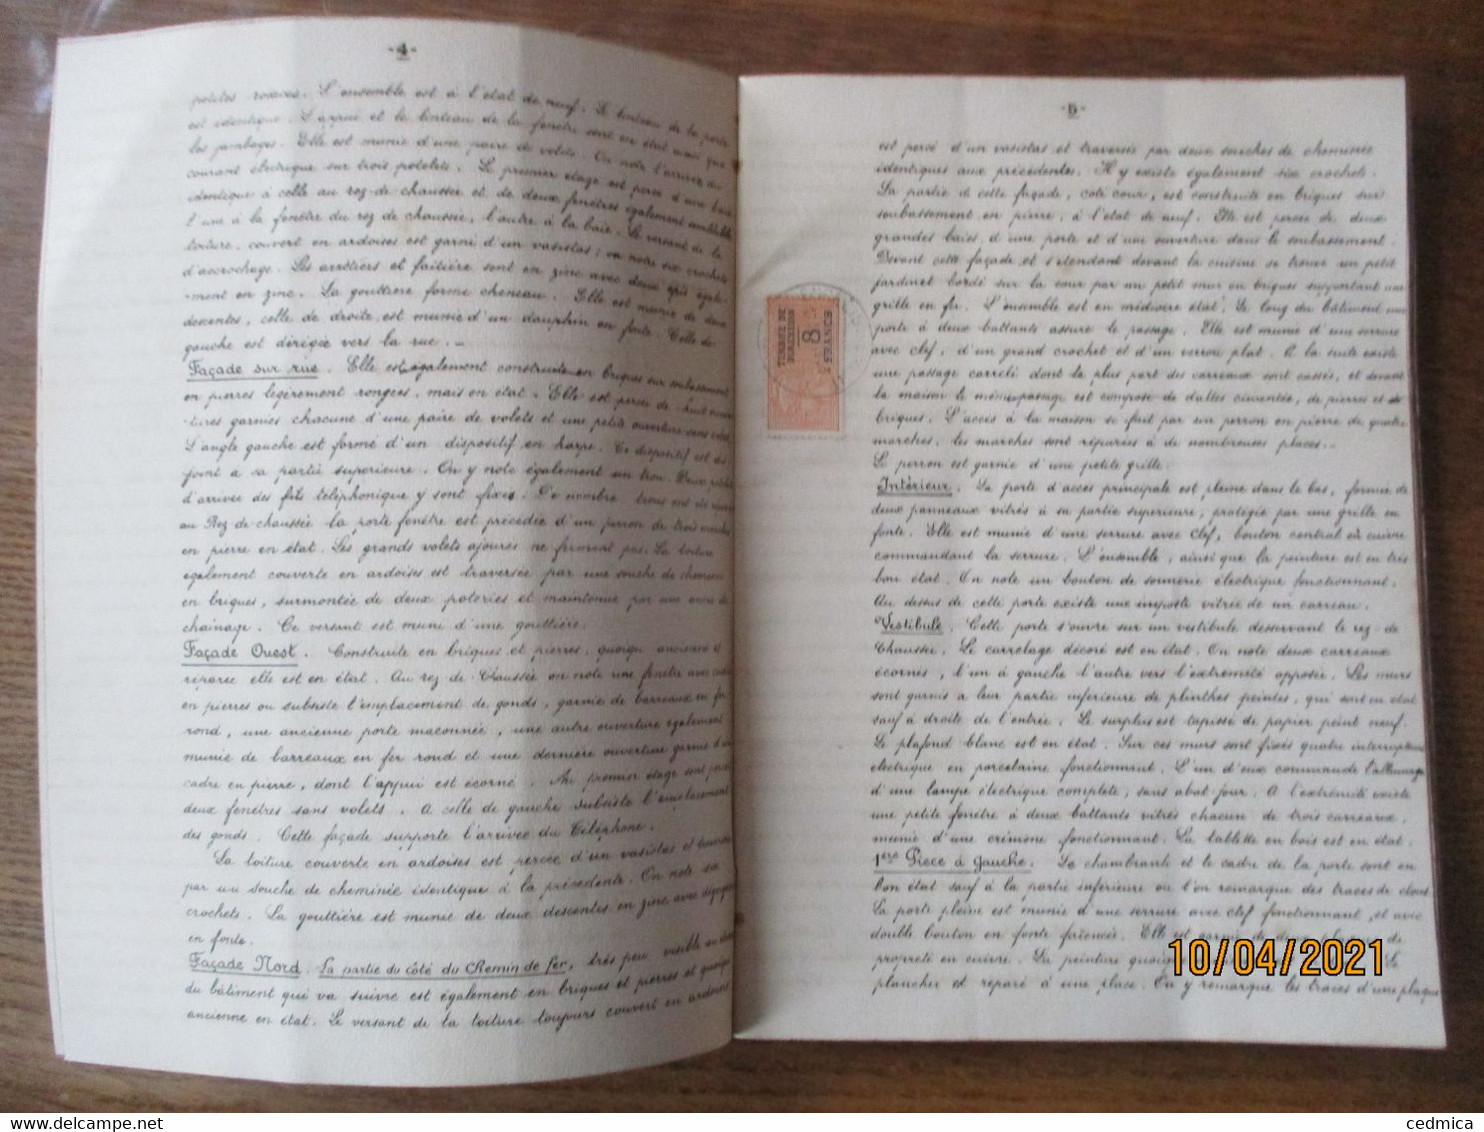 -4-
potelets rouees. L'ensemble est à l'état de neuf. Le linteau de la porte
est identique. L'appui et le linteau de la fenêtre sont en état ainsi que
les jambages. Elle est munie d'une paire de volets. On note l'arrivée du
courant électrique sur trois potelets. Le premier étage est percé d'une baie
identique à celle au rez-de-chaussée et de deux fenêtres également semblables
l'une à la fenêtre du rez de chaussée, l'autre à la baie. Le versant de la
toiture, couvert en ardoises est garni d'un vasistas; on note six crochets
d'accrochage. Les arrêtiers et faitière sont en zinc avec deux épis égale-
-ment en zinc. La gouttière forme cheneau. Elle est munie de deux
descentes, celle de droite est munie d'un dauphin en fonte. Celle de
gauche est dirigée vers la rue. -
Façade sur rue. Elle est également construite en briques sur soubassement
en pierres légèrement rongées, mais en état. Elle est percée de huit ouver-
-tures garnies chacune d'une paire de volets et une petite ouverture sans volet.
L'angle gauche est formé d'un dispositif en harpe. Ce dispositif est dis-
joint a sa partie superieure. On y note également un trou. Deux potelets
d'arrivée des fils téléphonique y sont fixés. De nombre trous ont été
au Rez-de-chaussée la porte fenêtre est précédée d'un perron de trois marches
en pierre en état. Les grands volets ajourés ne ferment pas. La toiture
egalement couverte en ardoises est traversée par une souche de cheminée
en briques, surmontée de deux poteries et maintenue par une
chainage. Ce versant est muni d'une gouttière.
Façade Ouest. Construite en briques et pierres, quoique ancienne et
réparée elle est en état. Au rez-de-Chaussée on note une fenêtre avec
en pierres ou subsiste l'emplacement de gonds, garnie de barreaux en fer
rond, une ancienne porte maconnée, une autre ouverture également
munie de barreaux en fer rond et une dernière ouverture garnie d'un
cadre en pierre, dont l'appui est écorné. Au premier étage sont percées
deux fenêtres sans volets. A celle de gauche subsiste l'emplacement
des gonds. Cette façade supporte l'arrivée du Téléphone.
La toiture couverte en ardoises est percée d'un vasistas et traversée
par une souche de cheminée identique à la précédente. On note six
crochets. La gouttière est munie de deux descentes en zinc avec
en fonte.
Façade Nord. La partie du côté du Chemin de fer, très peu visible
du bâtiment qui va suivre est également en briques et pierres et quoique
ancienne en état. Le versant de la toiture toujours couvert en ardoises
-5-
est percé d'un vasistas et traversé par deux souches de cheminée
identiques aux précédentes. Il y existe également six crochets.
La partie de cette façade, coté cour, est construite en briques sur
soubassement en pierre, à l'état de neuf. Elle est percée de deux
grandes baies, d'une porte et d'une ouverture dans le soubassement.
Devant cette façade et s'étendant devant la cuisine se trouve un petit
jardinet bordé sur la cour par un petit mur en briques supportant une
grille en fer. L'ensemble est en médiocre état. Le long du bâtiment une
porte à deux battants assure le passage. Elle est munie d'une serrure
avec clef, d'un grand crochet et d'un verrou plat. A la suite existe
une passage carrelé dont la plus part des carreaux sont cassés, et devant
la maison le même passage est composé de dalles cimentée, de pierres et de
briques. L'accès à la maison se fait par un perron en pierre de quatre
marches, les marches sont réparées à de nombreuses places. -
Le perron est garnie d'une petite grille.
Intérieur. La porte d'accès principale est pleine dans le bas, formée de
deux panneaux vitrés à sa partie superieure, protégée par une grille en
fonte. Elle est munie d'une serrure avec clef, bouton central en cuivre
commandant la serrure. L'ensemble, ainsi que la peinture est en très
bon état. On note un bouton de sonnerie électrique fonctionnant.
Au dessus de cette porte existe une imposte vitrée de un carreau.
Vestibule. Cette porte s'ouvre sur un vestibule desservant le rez-de
Chaussée. Le carrelage décoré est en état. On note deux carreaux
écornés, l'un à gauche l'autre vers l'extremité opposée. Les murs
sont garnis a leur partie inférieure de plinthes peintes, qui sont en état
sauf à droite de l'entrée. Le surplus est tapissé de papier peint neuf.
Le plafond blanc est en état. Sur ces murs sont fixés quatre interrupteurs
électrique en porcelaine fonctionnant. L'un d'eux commande l'allumage
d'une lampe électrique complète, sans abat-jour. A l'extrémité existe
une petite fenêtre à deux battants vitrés chacun de trois carreaux.
munie d'une crémone fonctionnant. La tablette en bois est en état.
1ère Pièce à gauche. Le chambranle et le cadre de la porte sont en
bon état sauf à la partie inférieure ou l'on remarque des traces de clous.
La porte pleine est munie d'une serrure avec clef fonctionnant, et avec
double bouton en fonte faiencée. Elle est garnie de deux plaques de
propreté en cuivre. La peinture quoique Le
plancher est réparé à une place. On y remarque les traces d'une plaque
TIMBRE DE
DIMENSION
8
FRANCS
10/04/2021
delcampe.net
cedmica